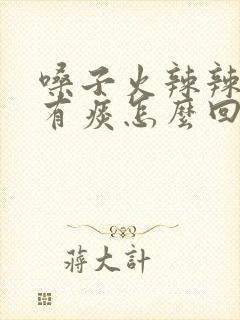 嗓子火辣辣
有痰怎麼回
蔣大計